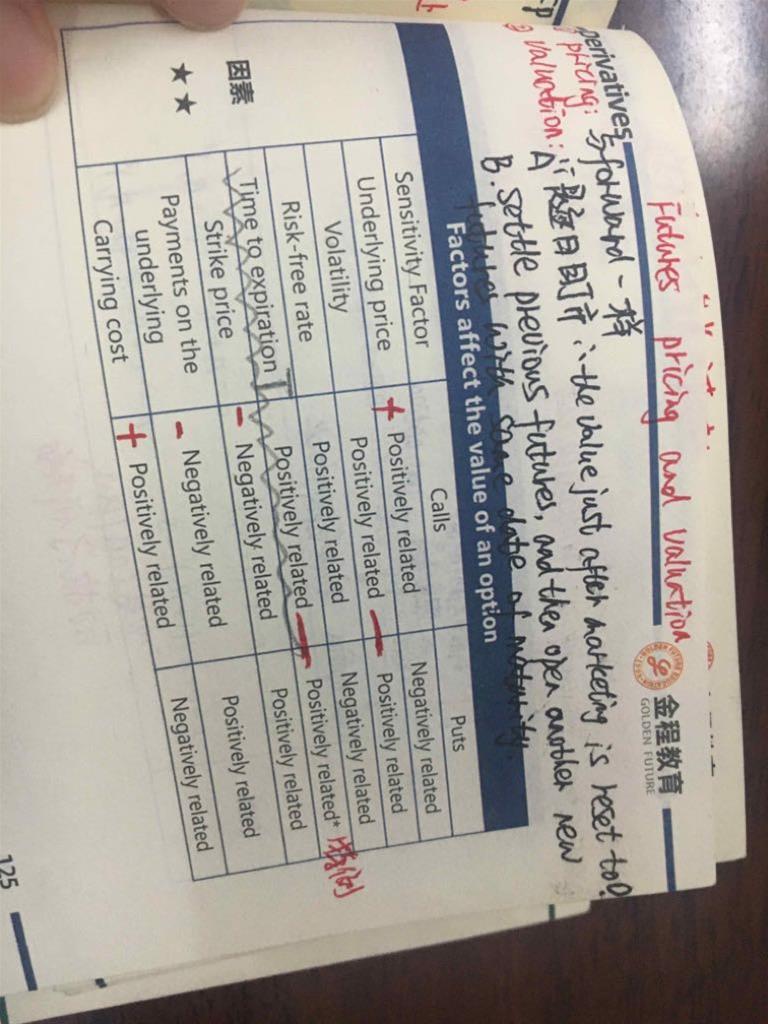 Futures pricing and valuation
金程教育
GOLDEN FUTURE
Derivatives
① pricing: 与forward一样
② valuation: A
逐日盯市 ∴ the value just after marketing is reset to 0.
B. settle previous futures, and then open another new
futures with same date of maturity.
Factors affect the value of an option
Sensitivity Factor Calls Puts
Underlying price + Positively related Negatively related
Volatility Positively related Positively related
Risk-free rate Positively related Negatively related
Time to expiration Positively related Positively related*
Strike price - Negatively related Positively related
Payments on the underlying - Negatively related Positively related
Carrying cost + Positively related Negatively related
因素
★★
125